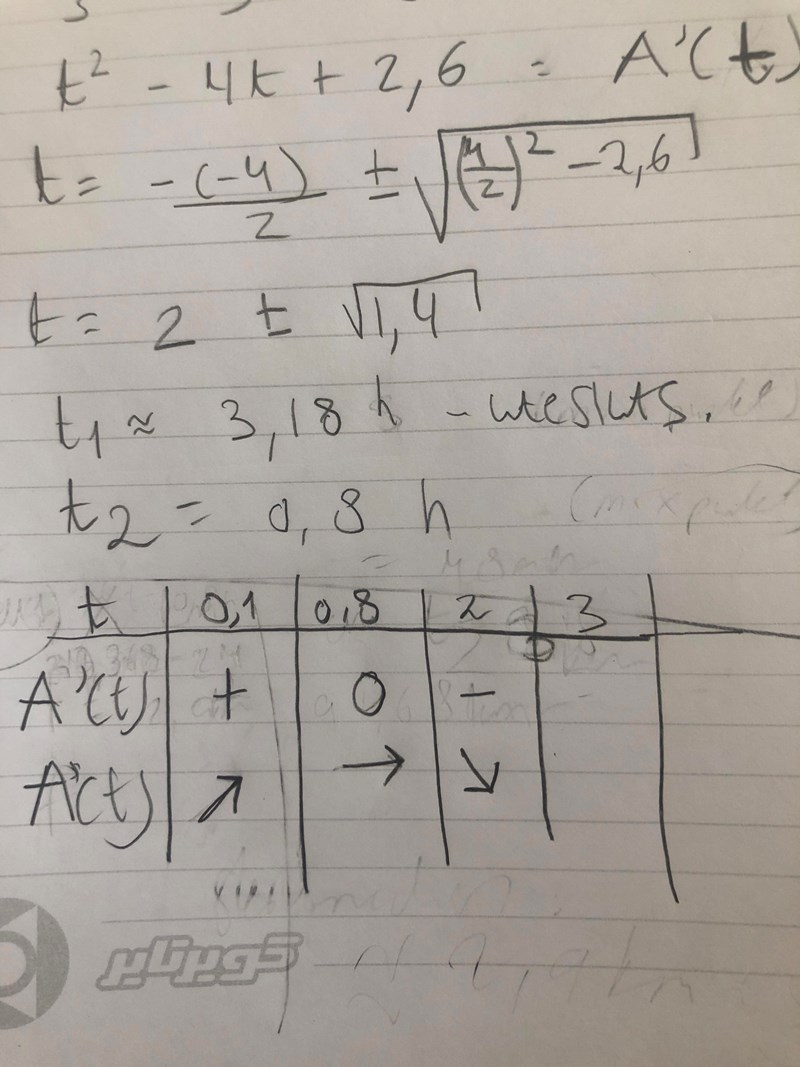 t² - 4t + 2,6 = A'(t)
t = -(-4)/2 ± √((4/2)² - 2,6)
t = 2 ± √1,4
t₁ ≈ 3,18 h - utesluts.
t₂ = 0,8 h
t | 0,1 | 0,8 | 2 | 3
A'(t) | + | 0 | -
A'(t) | ↗ | → | ↘
كويرتاير